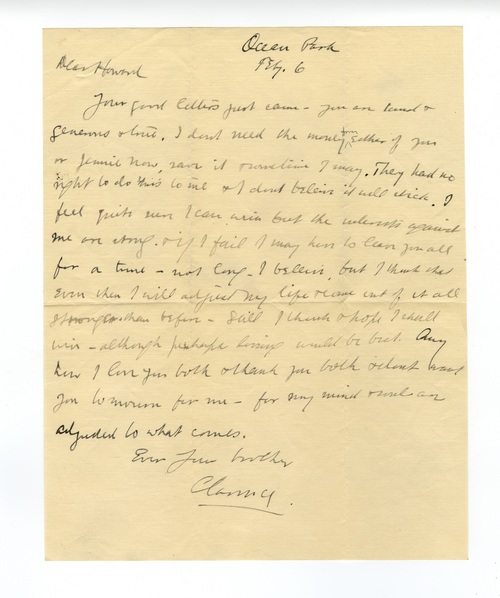 Ocean Park
Feb. 6
Dear Howard
Your good letters just came - you are kind &
generous & true. I dont need the money either of you
or Jennie now, save it & sometime I may. They had no
right to do this to me & I dont believe it will stick. I
feel quite sure I can win but the interests against
me are strong. & if I fail I may have to leave you all
for a time - not long - I believe, but I think that
even then I will adjust my life & come out of it all
stronger than before - Still I think & hope I shall
win - although perhaps losing would be best. Any
how I love you both & thank you both & dont want
you to mourn for me - for my mind & soul are
adjusted to what comes.
Ever Your brother
Clarence